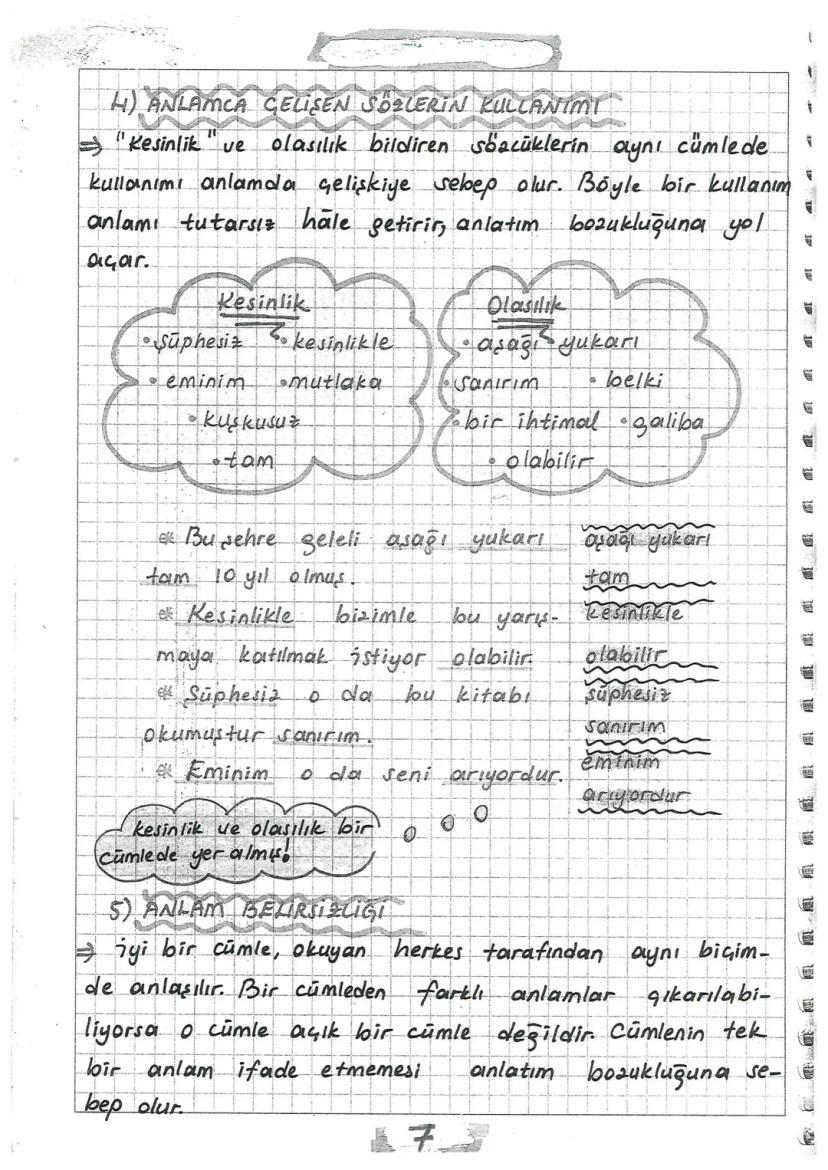 4) ANLAMCA ÇELİŞEN SÖZLERİN KULLANIMI
⇒ "Kesinlik" ve olasılık bildiren sözcüklerin aynı cümlede
kullanımı anlamda çelişkiye sebep olur. Böyle bir kullanım
anlamı tutarsız hâle getirir, anlatım bozukluğuna yol
açar.
Kesinlik
• şüphesiz • kesinlikle
• eminim • mutlaka
• kuşkusuz
• tam
Olasılık
• aşağı yukarı
• sanırım • belki
• bir ihtimal • galiba
• olabilir
* Bu şehre geleli aşağı yukarı
tam 10 yıl olmuş.
* Kesinlikle bizimle bu yarış-
maya katılmak istiyor olabilir.
* Şüphesiz o da bu kitabı
okumuştur sanırım.
* Eminim o da seni arıyordur.
aşağı yukarı
tam
kesinlikle
olabilir
şüphesiz
sanırım
eminim
arıyordur
kesinlik ve olasılık bir
cümlede yer almış!
5) ANLAM BELİRSİZLİĞİ
⇒ İyi bir cümle, okuyan herkes tarafından aynı biçim-
de anlaşılır. Bir cümleden farklı anlamlar çıkarılabi-
liyorsa o cümle açık bir cümle değildir. Cümlenin tek
bir anlam ifade etmemesi anlatım bozukluğuna se-
bep olur.
7